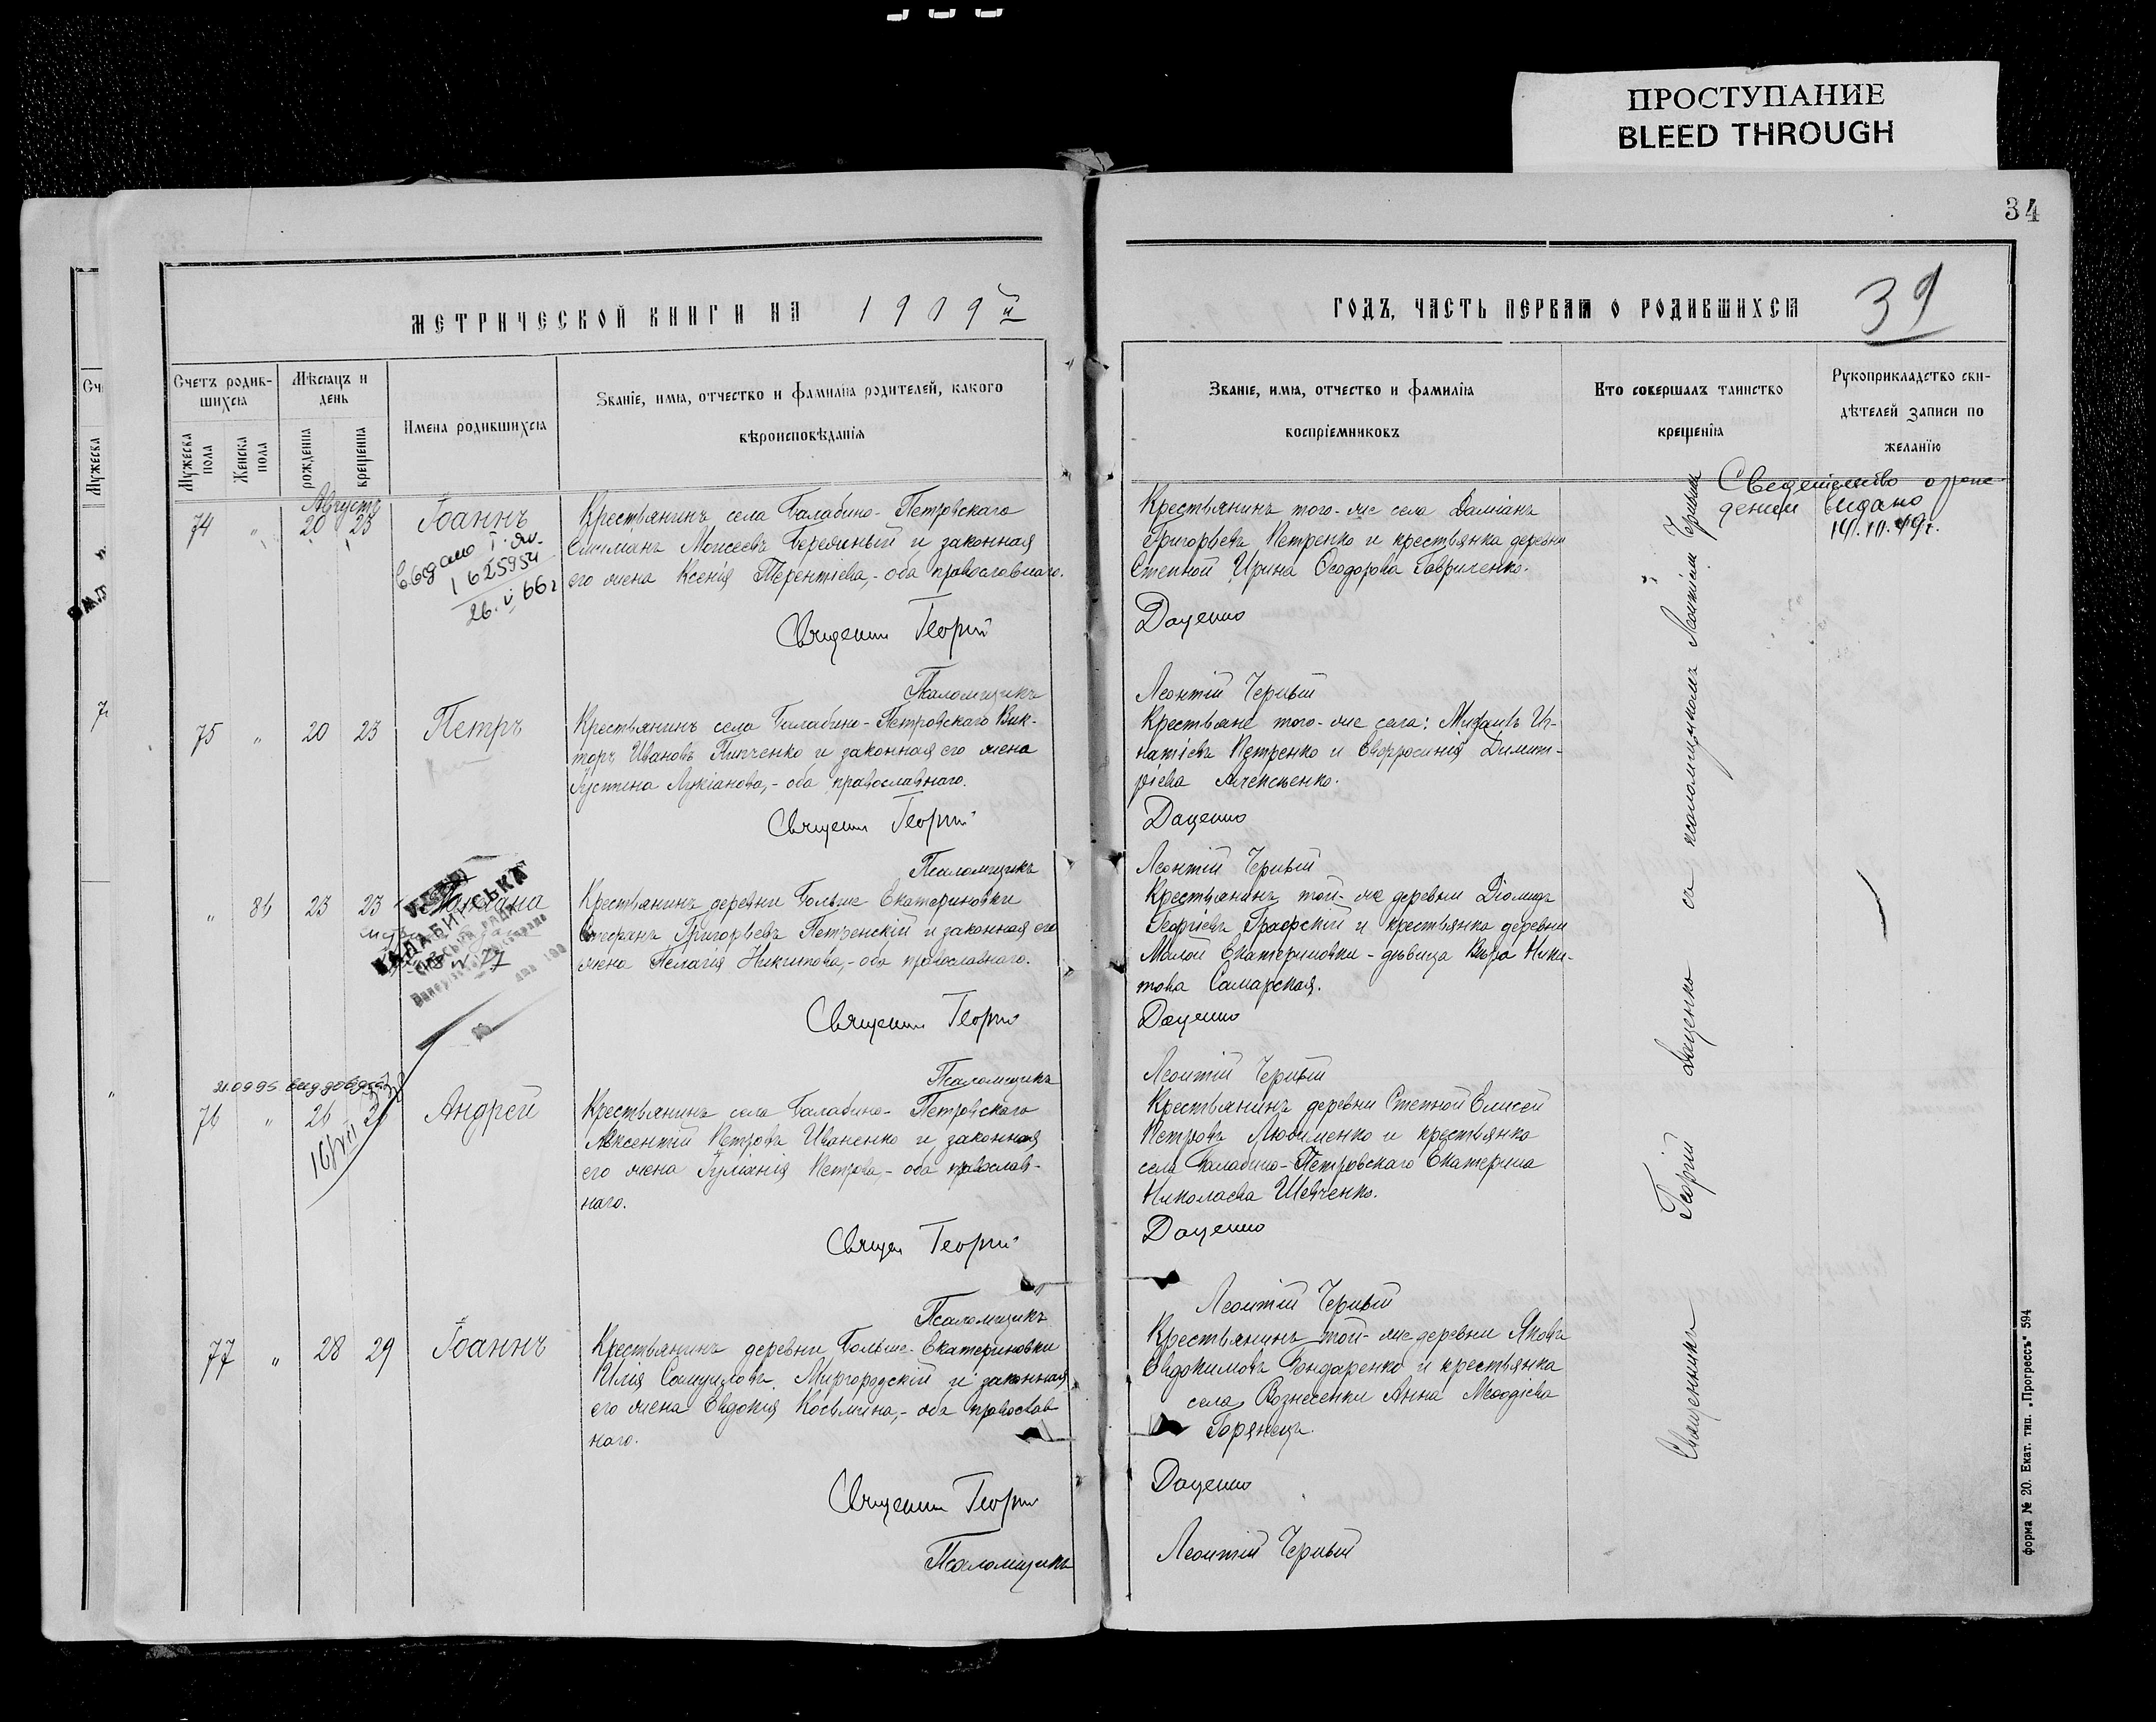 ПРОСТУПАНИЕ
BLEED THROUGH
34
МЕТРИЧЕСКОЙ КНИГИ НА 1909й
ГОДЪ, ЧАСТЬ ПЕРВАЯ О РОДИВШИХСЯ
39
Счетъ родив-
шихся
Мѣсяцъ и
день
Мужеска
пола
Женска
пола
рожденія
крещенія
Имена родившихся
Званіе, имя, отчество и фамилія родителей, какого
вѣроисповѣданія
Званіе, имя, отчество и фамилія
воспріемниковъ
Кто совершалъ таинство
крещенія
Рукоприкладство сви-
дѣтелей записи по
желанію
Августъ
74 " 20 23 Іоаннъ
26. V 66 г
Крестьянинъ села Балабино-Петровскаго
Моисеевъ и законная
его жена Ксенія Терентіева,- оба православнаго.
Священн Георгій
Псаломщикъ
Крестьянинъ того-же села Даміанъ
Григорьевъ Петренко и крестьянка деревни
Степной Ирина Ѳеодорова Гавриленко.
Даценко
Леонтій Черный
Свидетельство о рож-
дении выдано
75 " 20 23 Петръ
Крестьянинъ села Балабино-Петровскаго Вик-
торъ Ивановъ и законная его жена
Іустина Лукіанова,- оба православнаго.
Священн Георгій
Псаломщикъ
Крестьяне того-же села: Михаилъ Иг-
натіевъ Петренко и Евфросинія Димит-
ріева Алексѣенко.
Даценко
Леонтій Черный
" 86 23 23
Крестьянинъ деревни Больше Екатериновки
Стефанъ Григорьевъ Петренскій и законная его
жена Пелагія Никитова,- оба православнаго.
Священн Георгій
Псаломщикъ
Крестьянинъ той-же деревни Діомидъ
Георгіевъ Графскій и крестьянка деревни
Малой Екатериновки - дѣвица Вѣра Ники-
това Самарская.
Даценко
Леонтій Черный
21.09.95
76 " 26 Андрей
Крестьянинъ села Балабино-Петровскаго
Авксентій Петровъ Иваненко и законная
его жена Іуліанія Петрова,- оба православ-
наго.
Священ Георгій
Псаломщикъ
Крестьянинъ деревни Степной Елисей
Петровъ Любименко и крестьянка
села Балабино-Петровскаго Екатерина
Николаева Шевченко.
Даценко
Леонтій Черный
77 " 28 29 Іоаннъ
Крестьянинъ деревни Больше-Екатериновки
Илія Самуиловъ Миргородскій и законная
его жена Евдокія Косьмина,- оба православ
наго.
Священн Георгій
Псаломщикъ
Крестьянинъ той-же деревни Яковъ
Евдокимовъ Бондаренко и крестьянка
села Вознесенки Анна Меѳодіева
Горянецъ.
Даценко
Леонтій Черный
Священникъ Георгій Даценко съ псаломщикомъ Леонтіемъ Чернымъ
форма № 20. Екат. тип. „Прогрессъ" 594